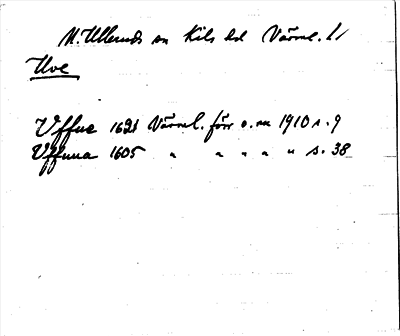 N. Ulleruds sn Kils hd Värml. l/
Uve
Uffue 1621 Värml. förr o. nu 1910 s. 9
Uffuna 1605 " " " " " s. 38